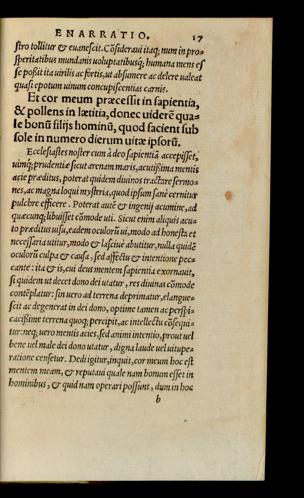 ENARRATIO. 17
stro tollitur & euanescit. Cōsideraui itaq; num in pro-
speritatibus mundanis uoluptatibusq; humana mens es
se poßit ita uirilis ac fortis, ut absumere ac delere ualeat
quasi epotum uinum concupiscentias carnis.
Et cor meum præcessit in sapientia,
& pollens in lætitia, donec uiderē qua-
le bonū filijs hominū, quod facient sub
sole in numero dierum uitæ ipsorū.
Ecclesiastes noster cum à deo sapientiā accepisset,
uimq; prudentiæ sicut arenam maris, acutißima mentis
acie præditus, poterat quidem diuinos tractare sermo-
nes, ac magna loqui mysteria, quod ipsum sanè cernitur
pulchre efficere. Poterat autē & ingenij acumine, ad
quæcunq; libuisset cōmode uti. Sicut enim aliquis acu-
to præditus uisu, eadem oculorū ui, modo ad honesta et
necessaria utitur, modo & lasciuè abutitur, nulla quidē
oculorū culpa & causa, sed affectu & intentione pec-
cante: ita & is, cui deus mentem sapientia exornauit,
si quidem ut decet dono dei utatur, res diuinas cōmode
contēplatur: sin uero ad terrena deprimatur, elangue-
scit ac degenerat in dei dono, optime tamen ac perspi-
cacißime terrena quoq; percipit, ac intellectu cōsequi-
tur: neq; uero mentis acies, sed animi intentio, prout uel
bene uel male dei dono utatur, digna laude uel uitupe-
ratione censetur. Dedi igitur, inquit, cor meum hoc est
mentem meam, & reputaui quale nam bonum esset in
hominibus, & quid nam operari possunt, dum in hoc
b